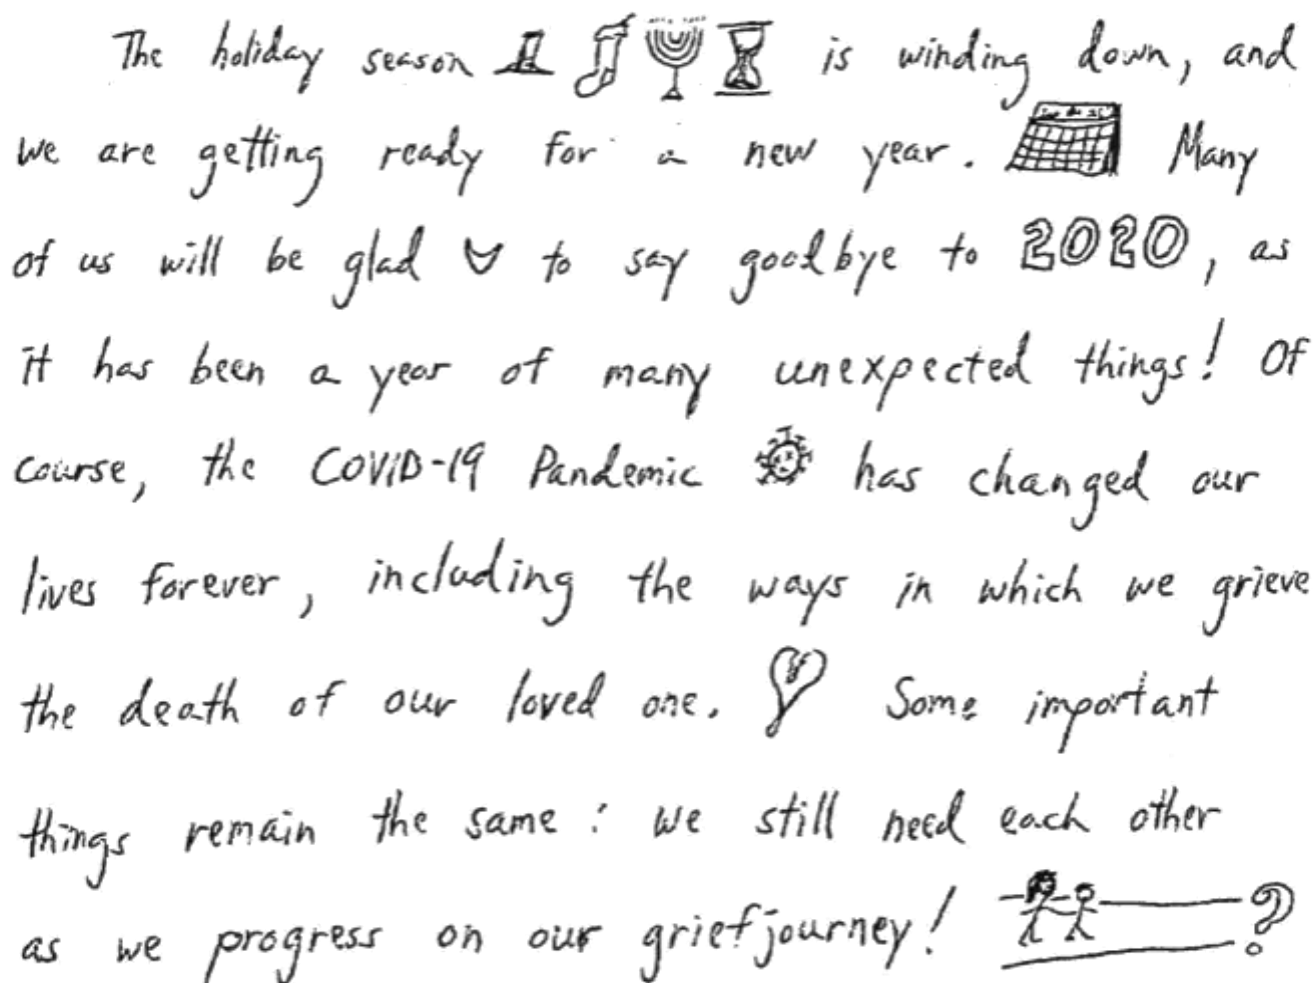 The holiday season is winding down, and
we are getting ready for a new year. Many
of us will be glad to say goodbye to 2020, as
it has been a year of many unexpected things! Of
course, the COVID-19 Pandemic has changed our
lives forever, including the ways in which we grieve
the death of our loved one. Some important
things remain the same: we still need each other
as we progress on our grief journey! ?